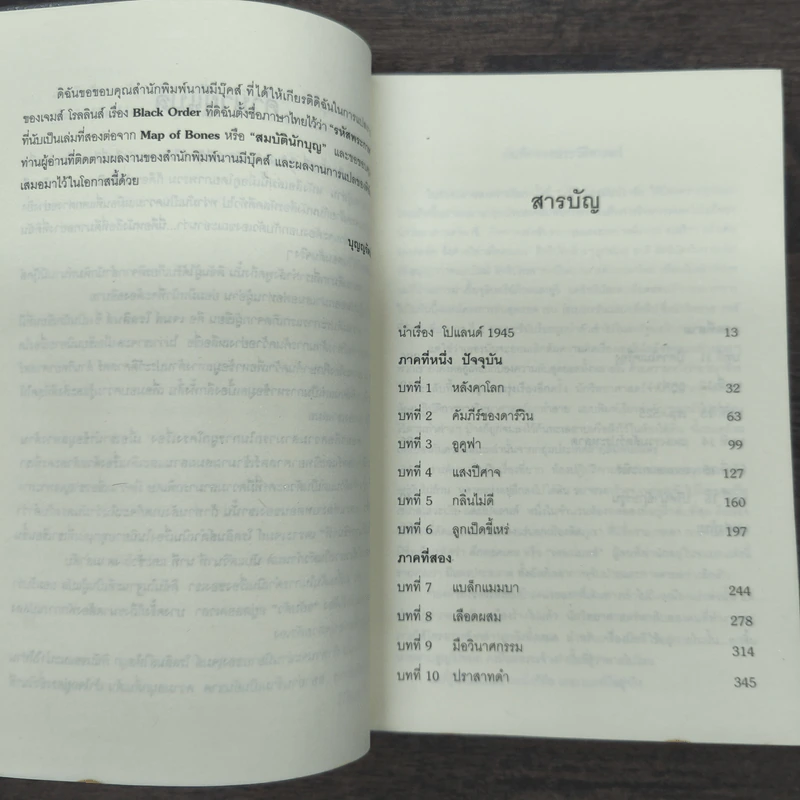 ดิฉันขอขอบคุณสำนักพิมพ์นานมีบุ๊คส์ ที่ได้ให้เกียรติดิฉันในการแปล
ของเจมส์ โรลลินส์ เรื่อง Black Order ที่ดิฉันตั้งชื่อภาษาไทยไว้ว่า
ที่นับเป็นเล่มที่สองต่อจาก Map of Bones หรือ "สมบัตินักบุญ" และขอขอบ
ท่านผู้อ่านที่ติดตามผลงานของสำนักพิมพ์นานมีบุ๊คส์ และผลงานการแปลของ
เสมอมาไว้ในโอกาสนี้ด้วย
สารบัญ
นำเรื่อง โปแลนด์ 1945 13
ภาคที่หนึ่ง ปัจจุบัน
บทที่ 1 หลังคาโลก 32
บทที่ 2 คัมภีร์ของดาร์วิน 63
บทที่ 3 อูคูฟา 99
บทที่ 4 แสงปีศาจ 127
บทที่ 5 กลิ่นไม่ดี 160
บทที่ 6 ลูกเป็ดขี้เหร่ 197
ภาคที่สอง
บทที่ 7 แบล็กแมมบา 244
บทที่ 8 เลือดผสม 278
บทที่ 9 มือวินาศกรรม 314
บทที่ 10 ปราสาทดำ 345